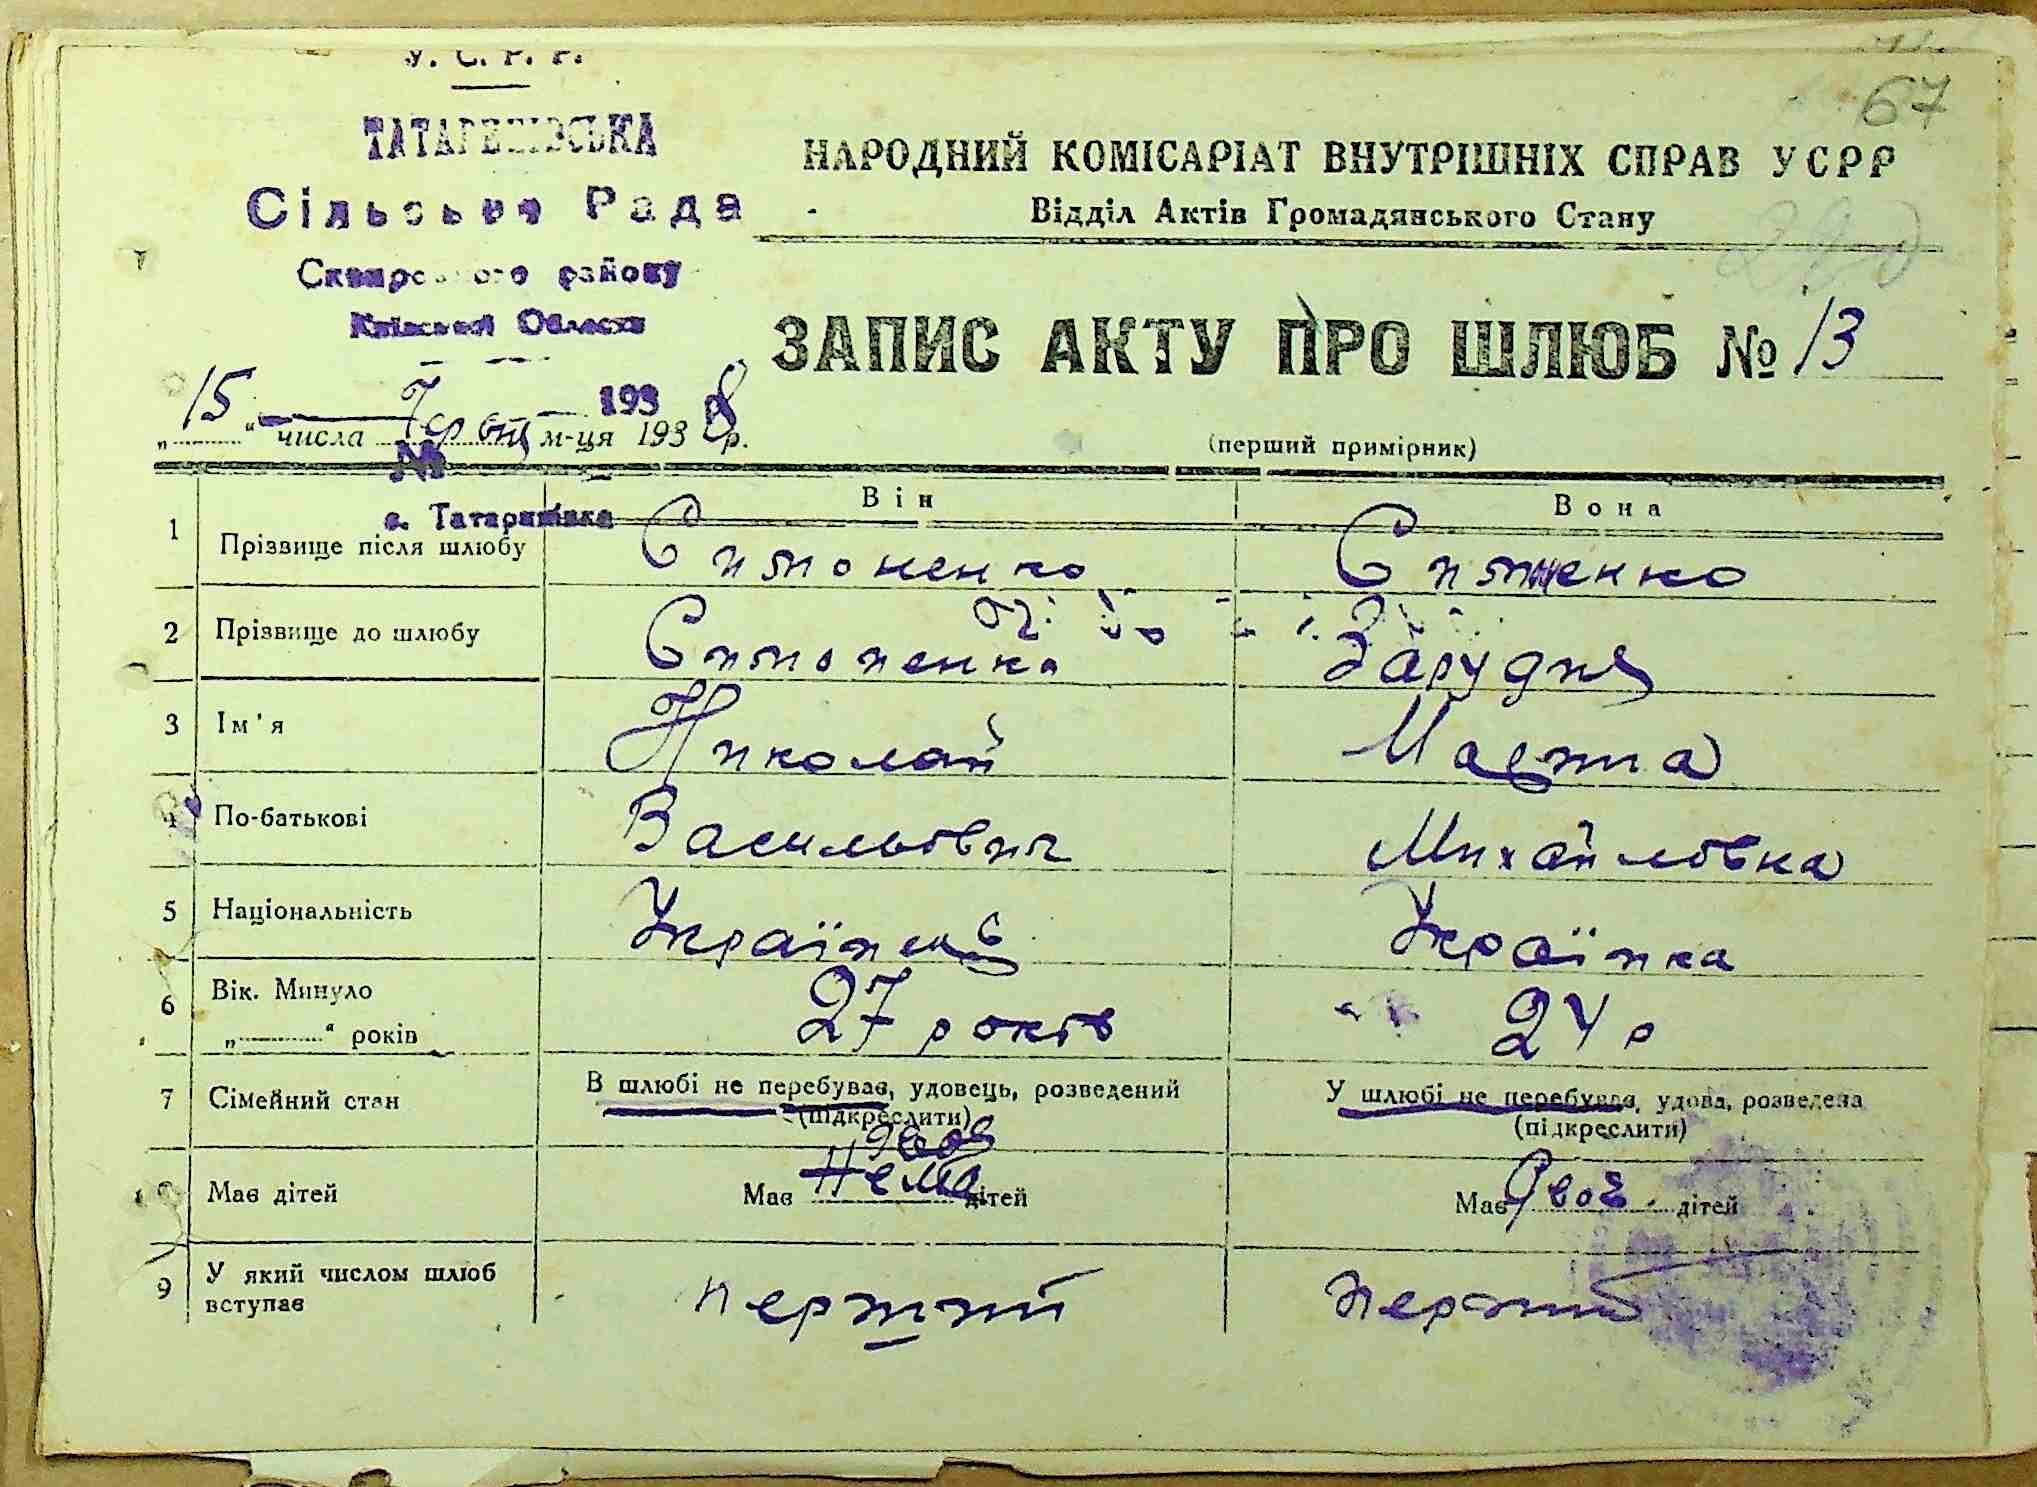 У. С. Р. Р.
ТАТАРЕШІВСЬКА
Сільська Рада
Сквирського району
Київської Области
193
№
с. Татаринівка
67
НАРОДНИЙ КОМІСАРІАТ ВНУТРІШНІХ СПРАВ УСРР
Відділ Актів Громадянського Стану
ЗАПИС АКТУ ПРО ШЛЮБ № 13
„15“ числа м-ця 1938 р.
(перший примірник)
Він Вона
1 Прізвище після шлюбу Симоненко Симоненко
2 Прізвище до шлюбу Симоненко Зарудня
3 Ім'я Николай Марта
4 По-батькові Васильович Михайловна
5 Національність Українець Українка
6 Вік. Минуло 27 років 24 р
„ “ років
7 Сімейний стан В шлюбі не перебував, удовець, розведений У шлюбі не перебував, удова, розведена
(підкреслити) (підкреслити)
двоє
8 Має дітей Має Нема дітей Має двоє дітей
9 У який числом шлюб перший перший
вступає